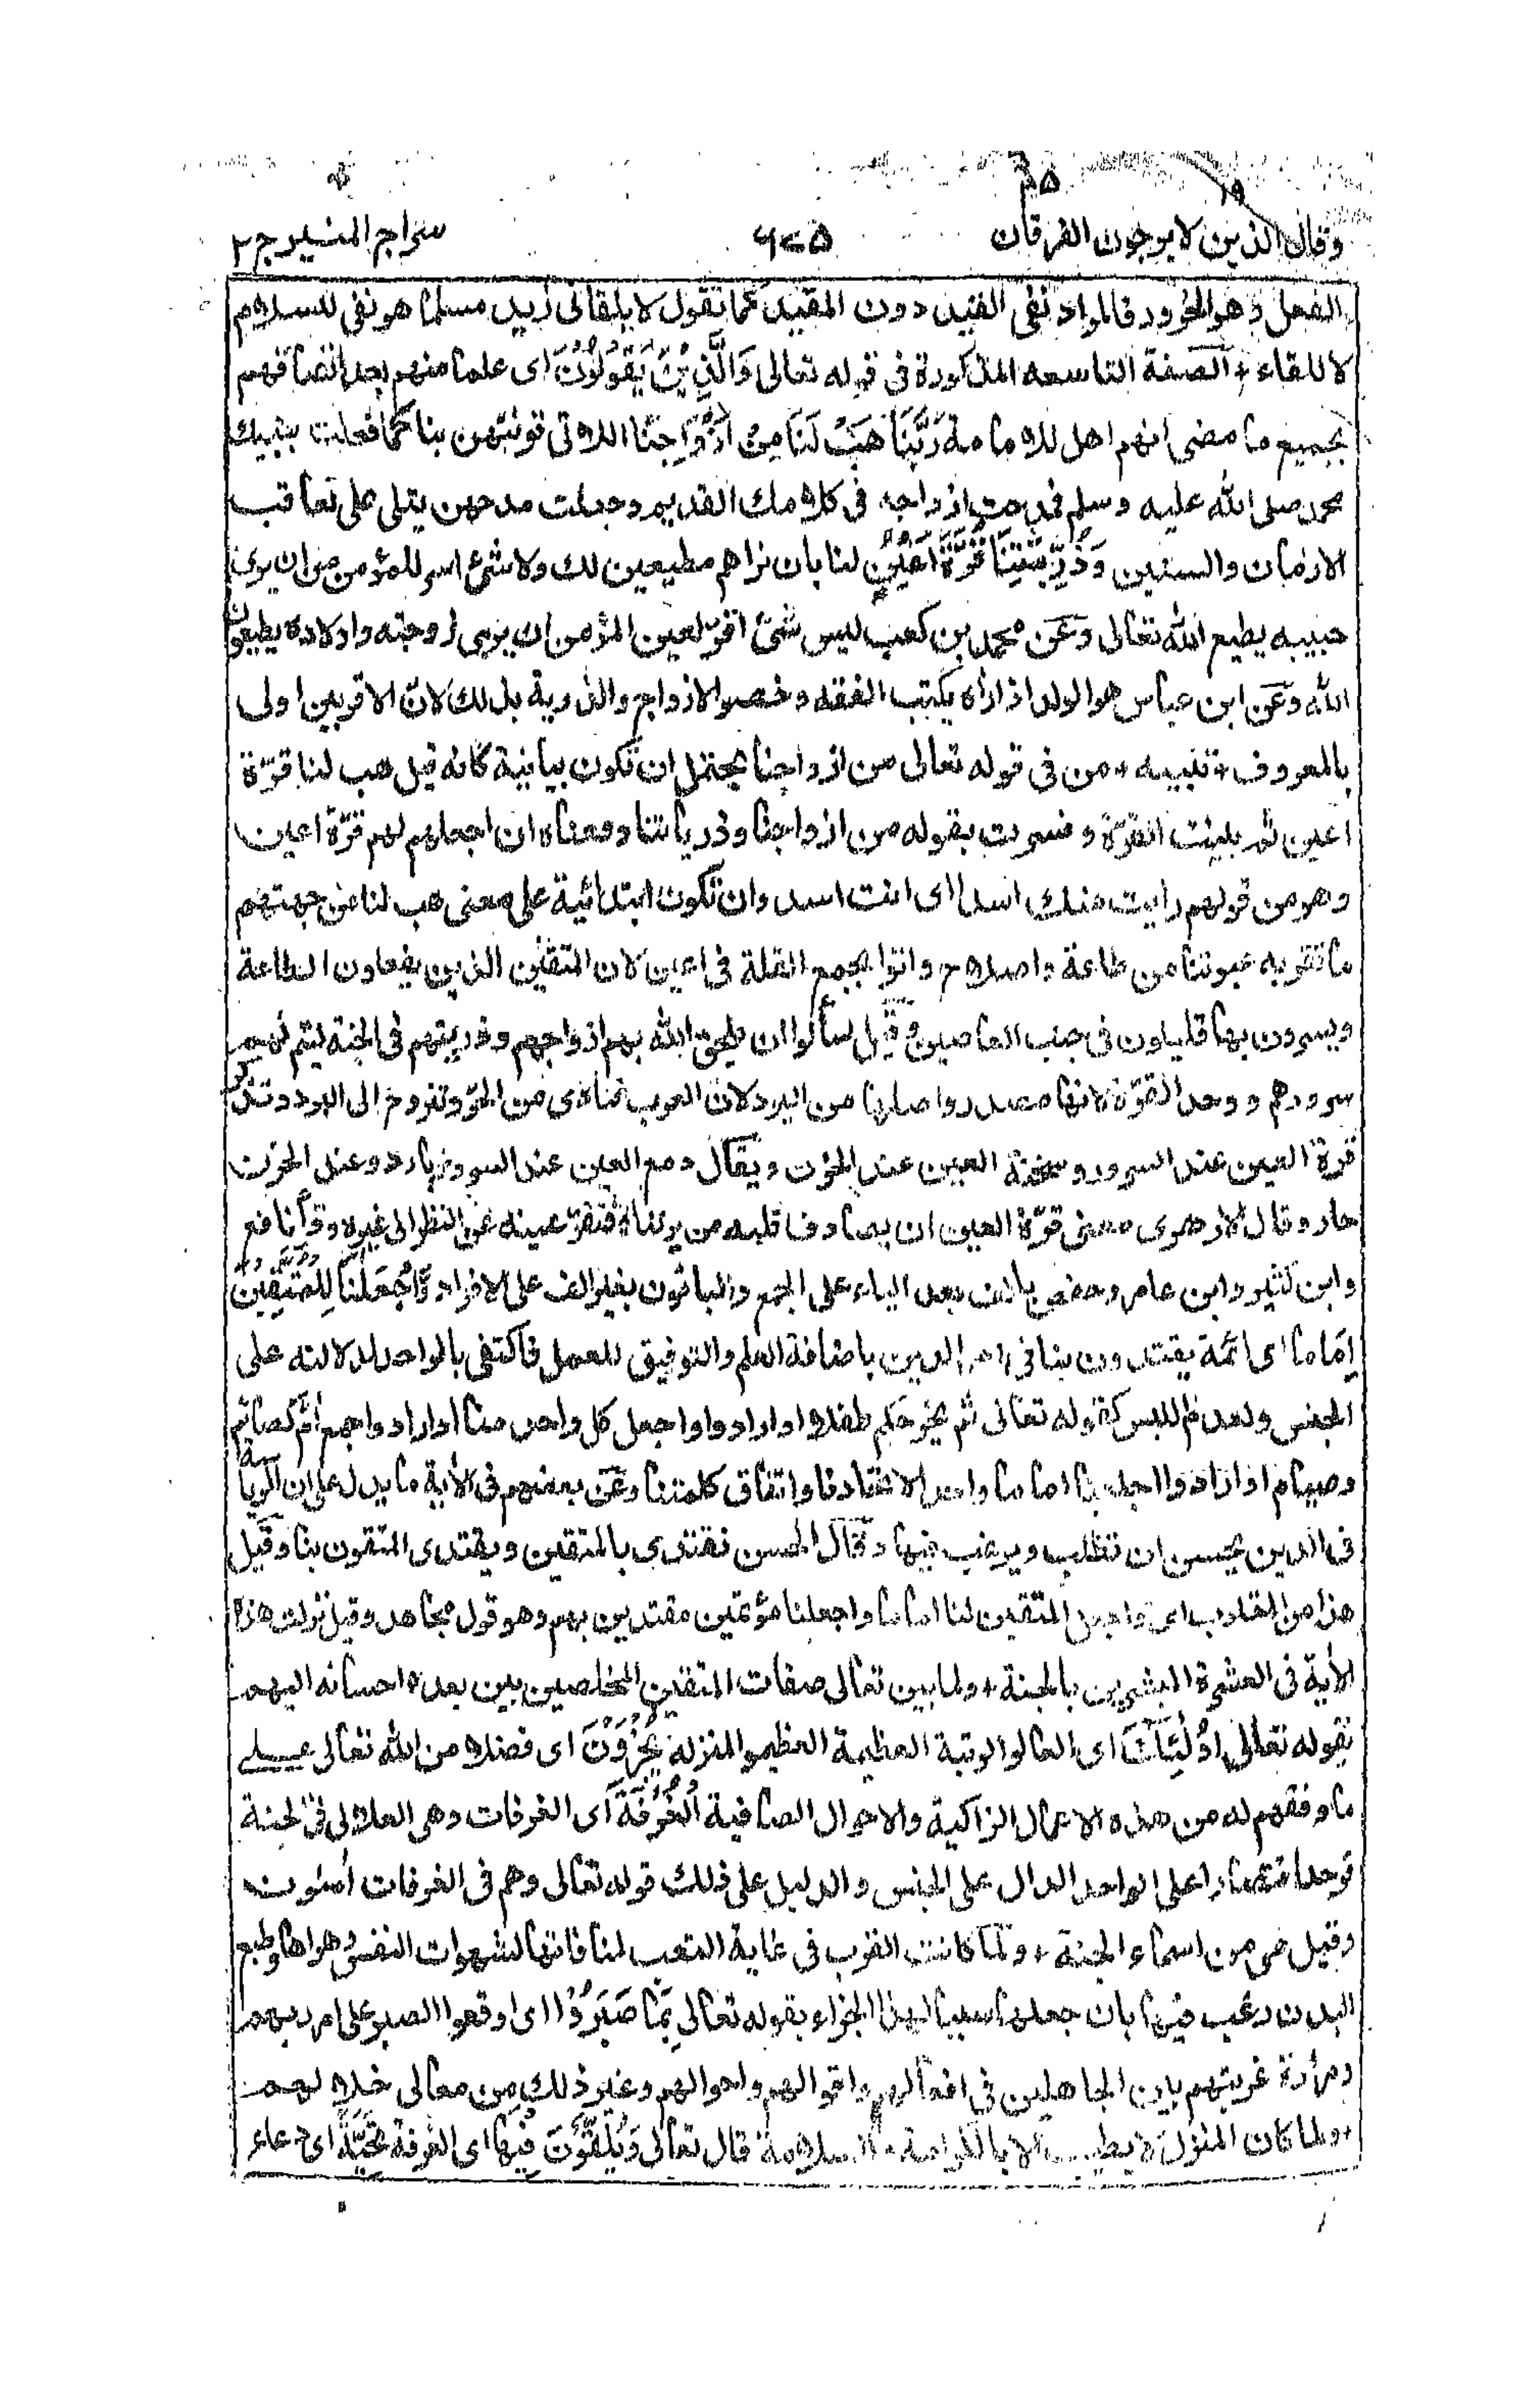 وقال الذين لا يرجون الفرقان ٦٧٥ سراج المنير ج ٢
الفعل وهو الخرور فالمراد نفى القيد دون المقيد كما تقول لا يلقانى زيد مسلما هو نفى للسلام
لا للقاء + الصفة التاسعه المذكورة فى قوله تعالى وَالَّذِيْنَ يَقُوْلُوْنَ اى علما منهم بعد اتصافهم
بجميع ما مضى انهم اهل للامامة رَبَّنَا هَبْ لَنَا مِنْ اَزْوَاجِنَا اللاتى قرنتهن بنا كما فعلت بنبيك
محمد صلى الله عليه وسلم فمدحت ازواجه فى كلامك القديم وجعلت مدحهن يتلى على تعاقب
الازمان والسنين وَذُرِّيّٰتِنَا قُرَّةَ اَعْيُنٍ لنا بان نراهم مطيعين لك ولا شئ اسر للمؤمن من ان يرى
حبيبه يطيع الله تعالى وعن محمد بن كعب ليس شئ اقر لعين المؤمن ان يرى زوجته واولاده يطيعون
الله وعن ابن عباس هو الولد اذا راه يكتب الفقه وخصوا الازواج والذرية بذلك لان الاقربين اولى
بالمعروف + تنبيه + من فى قوله تعالى من ازواجنا يحتمل ان تكون بيانية كانه قيل هب لنا قرّة
اعين ثم بينت القرّة وفسرت بقوله من ازواجنا وذرياتنا ومعناه ان اجعلهم لهم قرّة اعين
وهو من قولهم رايت منك اسدا اى انت اسد وان تكون ابتدائية على معنى هب لنا من جهتهم
ما تقر به عيوننا من طاعة واصلاح واتوا بجمع القلة فى اعين لان المتقين الذين يفعلون الطاعة
ويسرون بها قليلون فى جنب العاصين وقيل سألوا ان يلحق الله بهم ازواجهم وذريتهم فى الجنة ليتم لهم
سرورهم ووحد القرّة لانها مصدر واصلها من البرد لان العرب تتاذى من الحرّ وتتروح الى البرد وتذكر
قرة العين عند السرور وسخنة العين عند الحزن ويقال دمع العين عند السرور بارد وعند الحزن
حار وقال الازهرى معنى قرّة العين ان يصادف قلبه من يرضاه فتقرّ عينه عن النظر الى غيره وقرأ نافع
وابن كثير وابن عامر وحفص بالف بعد الياء على الجمع والباقون بغير الف على الافراد وَّاجْعَلْنَا لِلْمُتَّقِيْنَ
اِمَامًا اى ائمة يقتدون بنا فى امر الدين باضافة العلم والتوفيق للعمل فاكتفى بالواحد لدلالته على
الجنس ولعدم اللبس كقوله تعالى ثم يخرجكم طفلا او ارادوا واجعل كل واحد منا او ارادوا جمع آمّ كصائم
وصيام او ارادوا اجعلنا اماما واحدا لاتحادنا واتفاق كلمتنا وعن بعضهم فى الأية ما يدل على ان الرياسة
فى الدين يحسن ان تطلب ويرغب فيها وقال الحسن نقتدى بالمتقين ويقتدى المتقون بنا وقيل
هذا من المقلوب اى واجعل المتقين لنا اماما واجعلنا مؤتمين مقتدين بهم وهو قول مجاهد وقيل نزلت هذه
الأية فى العشرة المبشرين بالجنة + ولما بين تعالى صفات المتقين المخلصين بين بعده احسانه اليهم
بقوله تعالى اُولٰٓئِكَ اى العالو الرتبة العظيمة العظيمو المنزله يُجْزَوْنَ اى فضلا من الله تعالى على
ما وفقهم له من هذه الاعمال الزاكية والاحوال الصافية الْغُرْفَةَ اى الغرفات وهى العلالى فى الجنة
فوحد اقتصارا على الواحد الدال على الجنس والدليل على ذلك قوله تعالى وهم فى الغرفات أمنون
وقيل هى من اسماء الجنة + ولما كانت القرب فى غاية التعب لمنافاتها لشهوات النفس وهواها وطبع
البدن رغب فيها بان جعلها سببا لهذا الجزاء بقوله تعالى بِمَا صَبَرُوْا اى اوقعوا الصبر على امر ربهم
ومرارة غربتهم بين الجاهلين فى افعالهم واقوالهم واحوالهم وغير ذلك من معالى خلالهم
+ ولما كان المنزل لا يطيب الا بالكرامة والسلامة قال تعالى وَيُلَقَّوْنَ فِيْهَا اى الغرفة تَحِيَّةً اى دعاء